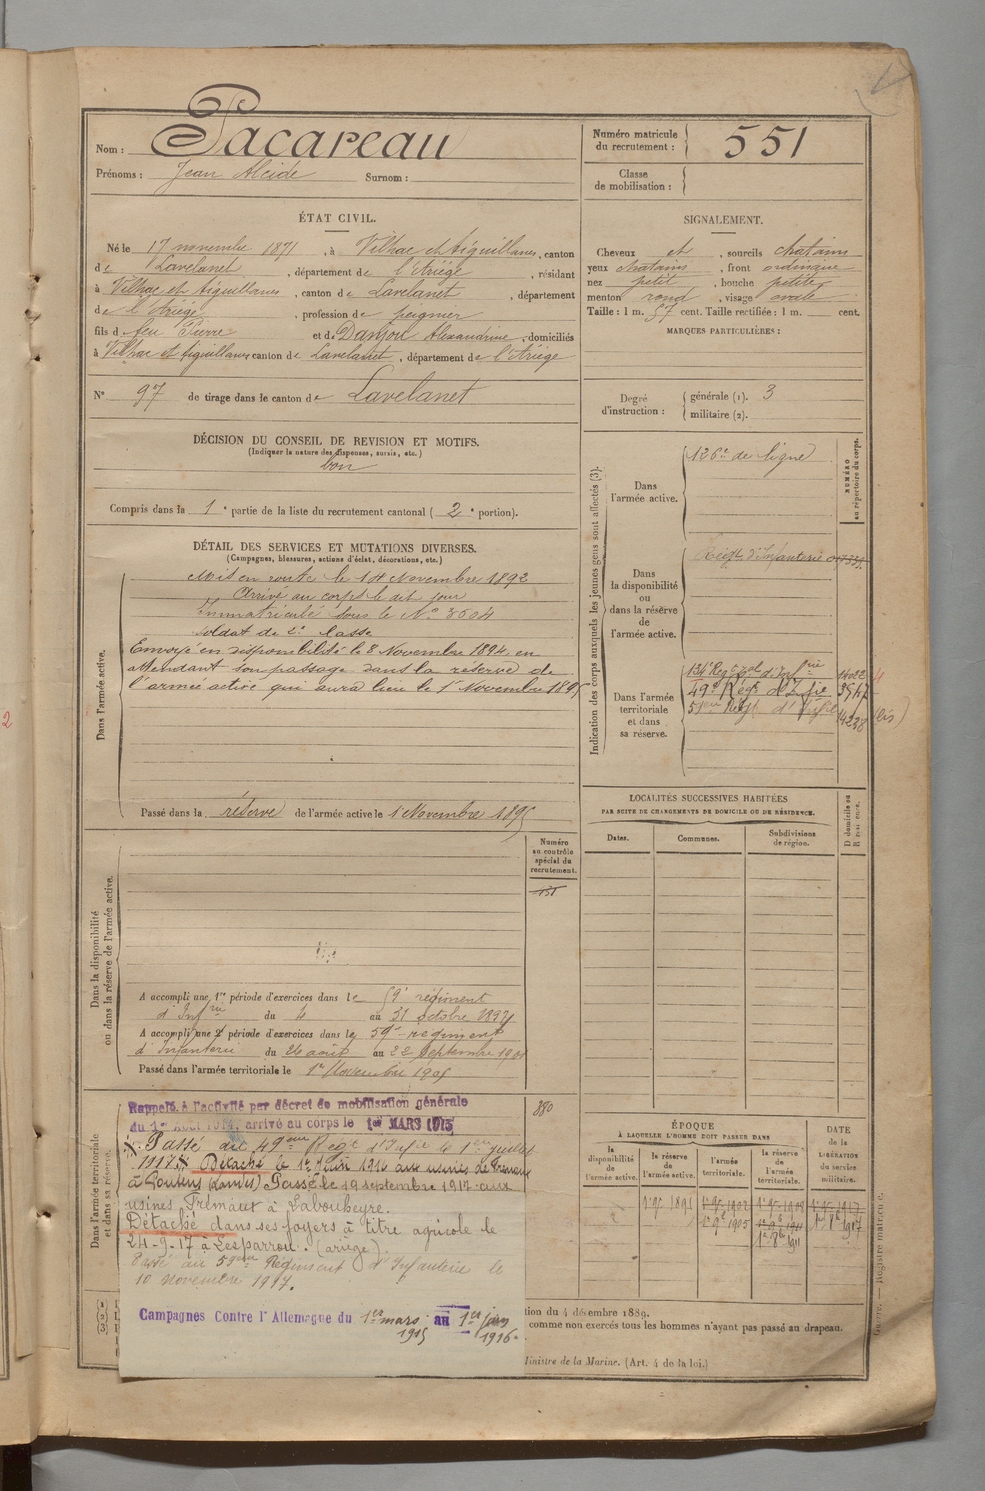 Nom : Pacareau
Prénoms : Jean Alcide Surnom :
Numéro matricule du recrutement : 551
Classe de mobilisation :
ÉTAT CIVIL.
Né le 17 novembre 1871, à Vilhac et Aiguillanes, canton
de Lavelanet, département de l'Ariège, résidant
à Vilhac et Aiguillanes, canton de Lavelanet, département
de l'Ariège, profession de peignier
fils de feu Pierre et de Danjou Alexandrine, domiciliés
à Vilhac et Aiguillanes canton de Lavelanet, département de l'Ariège
N° 97 de tirage dans le canton de Lavelanet
SIGNALEMENT.
Cheveux et, sourcils chatains
yeux chatains, front ordinaire
nez petit, bouche petite
menton rond, visage ovale
Taille : 1 m. 57 cent. Taille rectifiée : 1 m. cent.
MARQUES PARTICULIÈRES :
Degré d'instruction : générale (1). 3
militaire (2).
DÉCISION DU CONSEIL DE REVISION ET MOTIFS.
(Indiquer la nature des dispenses, sursis, etc.)
bon
Compris dans la 1e partie de la liste du recrutement cantonal (2e portion).
DÉTAIL DES SERVICES ET MUTATIONS DIVERSES.
(Campagnes, blessures, actions d'éclat, décorations, etc.)
Dans l'armée active.
Mis en route le 14 Novembre 1892
Arrivé au corps le dit jour
Immatriculé sous le No 3604
soldat de 2e classe
Envoyé en disponibilité le 8 Novembre 1894, en
attendant son passage dans la réserve de
l'armée active qui aura lieu le 1 Novembre 1895
Passé dans la réserve de l'armée active le 1 Novembre 1895
Indication des corps auxquels les jeunes gens sont affectés (3).
NUMÉRO au répertoire du corps.
Dans l'armée active.
126e de ligne
Dans la disponibilité ou dans la réserve de l'armée active.
Régt d'Infanterie
Dans l'armée territoriale et dans sa réserve.
134e Regt tal d'Infrie
49e Régt d'Infie
59ème Régt d'Infie 14238 (bis)
LOCALITÉS SUCCESSIVES HABITÉES
PAR SUITE DE CHANGEMENTS DE DOMICILE OU DE RÉSIDENCE.
Dates. Communes. Subdivisions de région. D domicile ou R résidence.
Dans la disponibilité ou dans la réserve de l'armée active.
Numéro au contrôle spécial du recrutement.
A accompli une 1re période d'exercices dans le 59e régiment
d'Infrie du 4 au 31 octobre 1897
A accompli une 2e période d'exercices dans le 59e régiment
d'Infanterie du 26 août au 22 Septembre 1901
Passé dans l'armée territoriale le 1er Novembre 1905
880
Dans l'armée territoriale et dans sa réserve.
Rappelé à l'activité par décret de mobilisation générale
du 1er AOUT 1914, arrivé au corps le 1er MARS 1915
Passé au 49ème Régt d'Infie le 1er juillet
1917. Détaché le 1er Juin 1916 aux usines de Fremaux
à Pontenx (Landes) Passé le 19 septembre 1917 aux
usines Frémaut à Labouheyre.
Détaché dans ses foyers à titre agricole le
24-9-17 à Lesparrou. (ariège).
Passé au 59ème Régiment d'Infanterie le
10 novembre 1917.
Campagnes Contre l'Allemagne du 1er mars 1915 au 1er juin 1916
ÉPOQUE
À LAQUELLE L'HOMME DOIT PASSER DANS
la disponibilité de l'armée active. la réserve de l'armée active. l'armée territoriale. la réserve de l'armée territoriale.
DATE de la LIBÉRATION du service militaire.
(1)
(2)
(3)
tion du 4 décembre 1889.
comme non exercés tous les hommes n'ayant pas passé au drapeau.
Ministre de la Marine. (Art. 4 de la loi.)
Guerre. — Registre matricule.